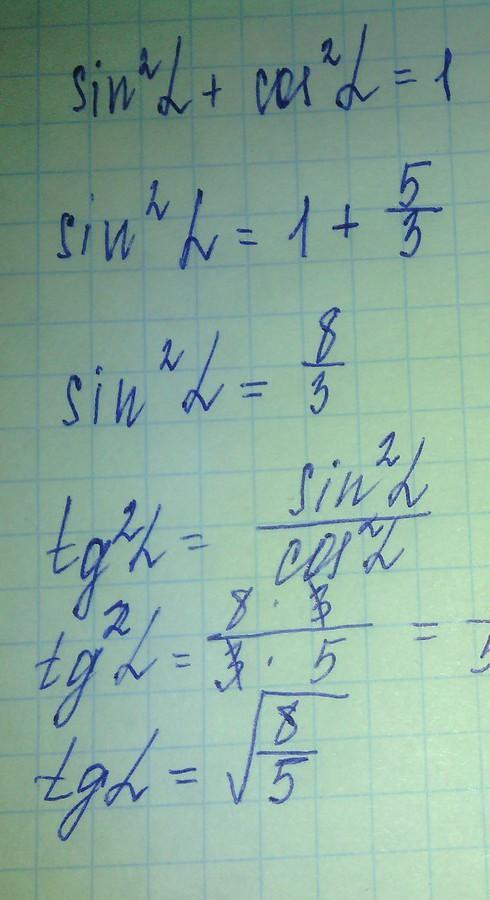 sin²α + cos²α = 1
sin²α = 1 + 5/3
sin²α = 8/3
tg²α = sin²α / cos²α
tg²α = 8 · 3 / 3 · 5 =
tgα = √8/5